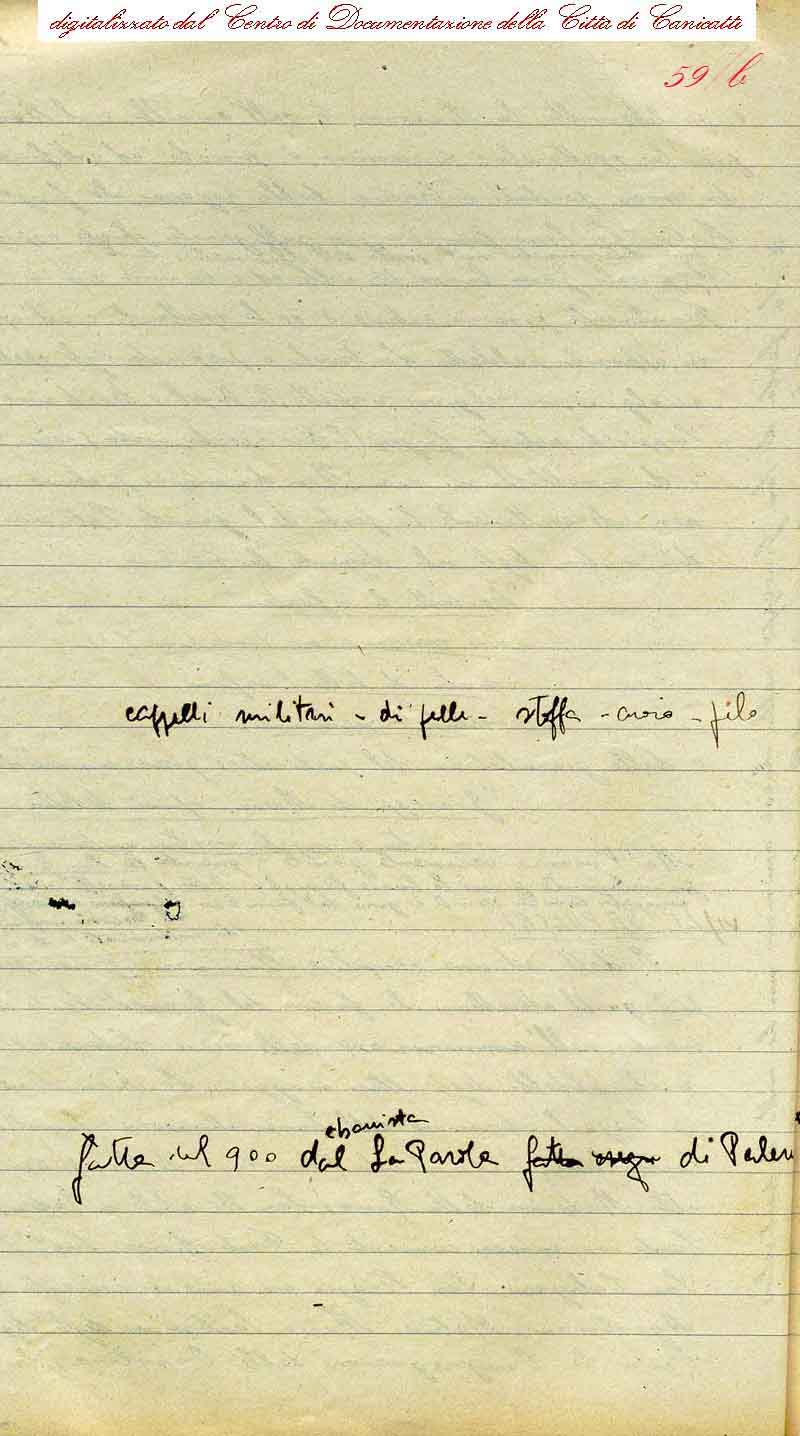 digitalizzato dal Centro di Documentazione della Città di Canicattì
59 b
cappelli militari - di pelle - stoffa - cuoio - filo
ebanista
fatta nel 900 dal La Parola fatta di Palerm